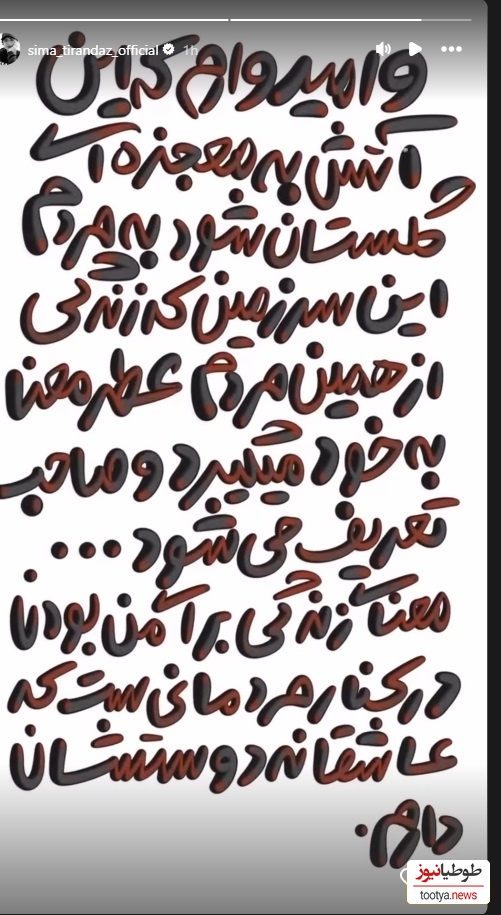 sima_tirandaz_official 1h
و امیدوارم که این
آتش به معجزه ای
گلستان شود به مردم
این سرزمین که زندگی
از همین مردم عطر معنا
به خود میگیرد و صاحب
تعریف می شود ...
معنای زندگی برای من بودن
در کنار مردمانی ست که
عاشقانه دوستشان
دارم.
طوطیانیوز
tootya.news